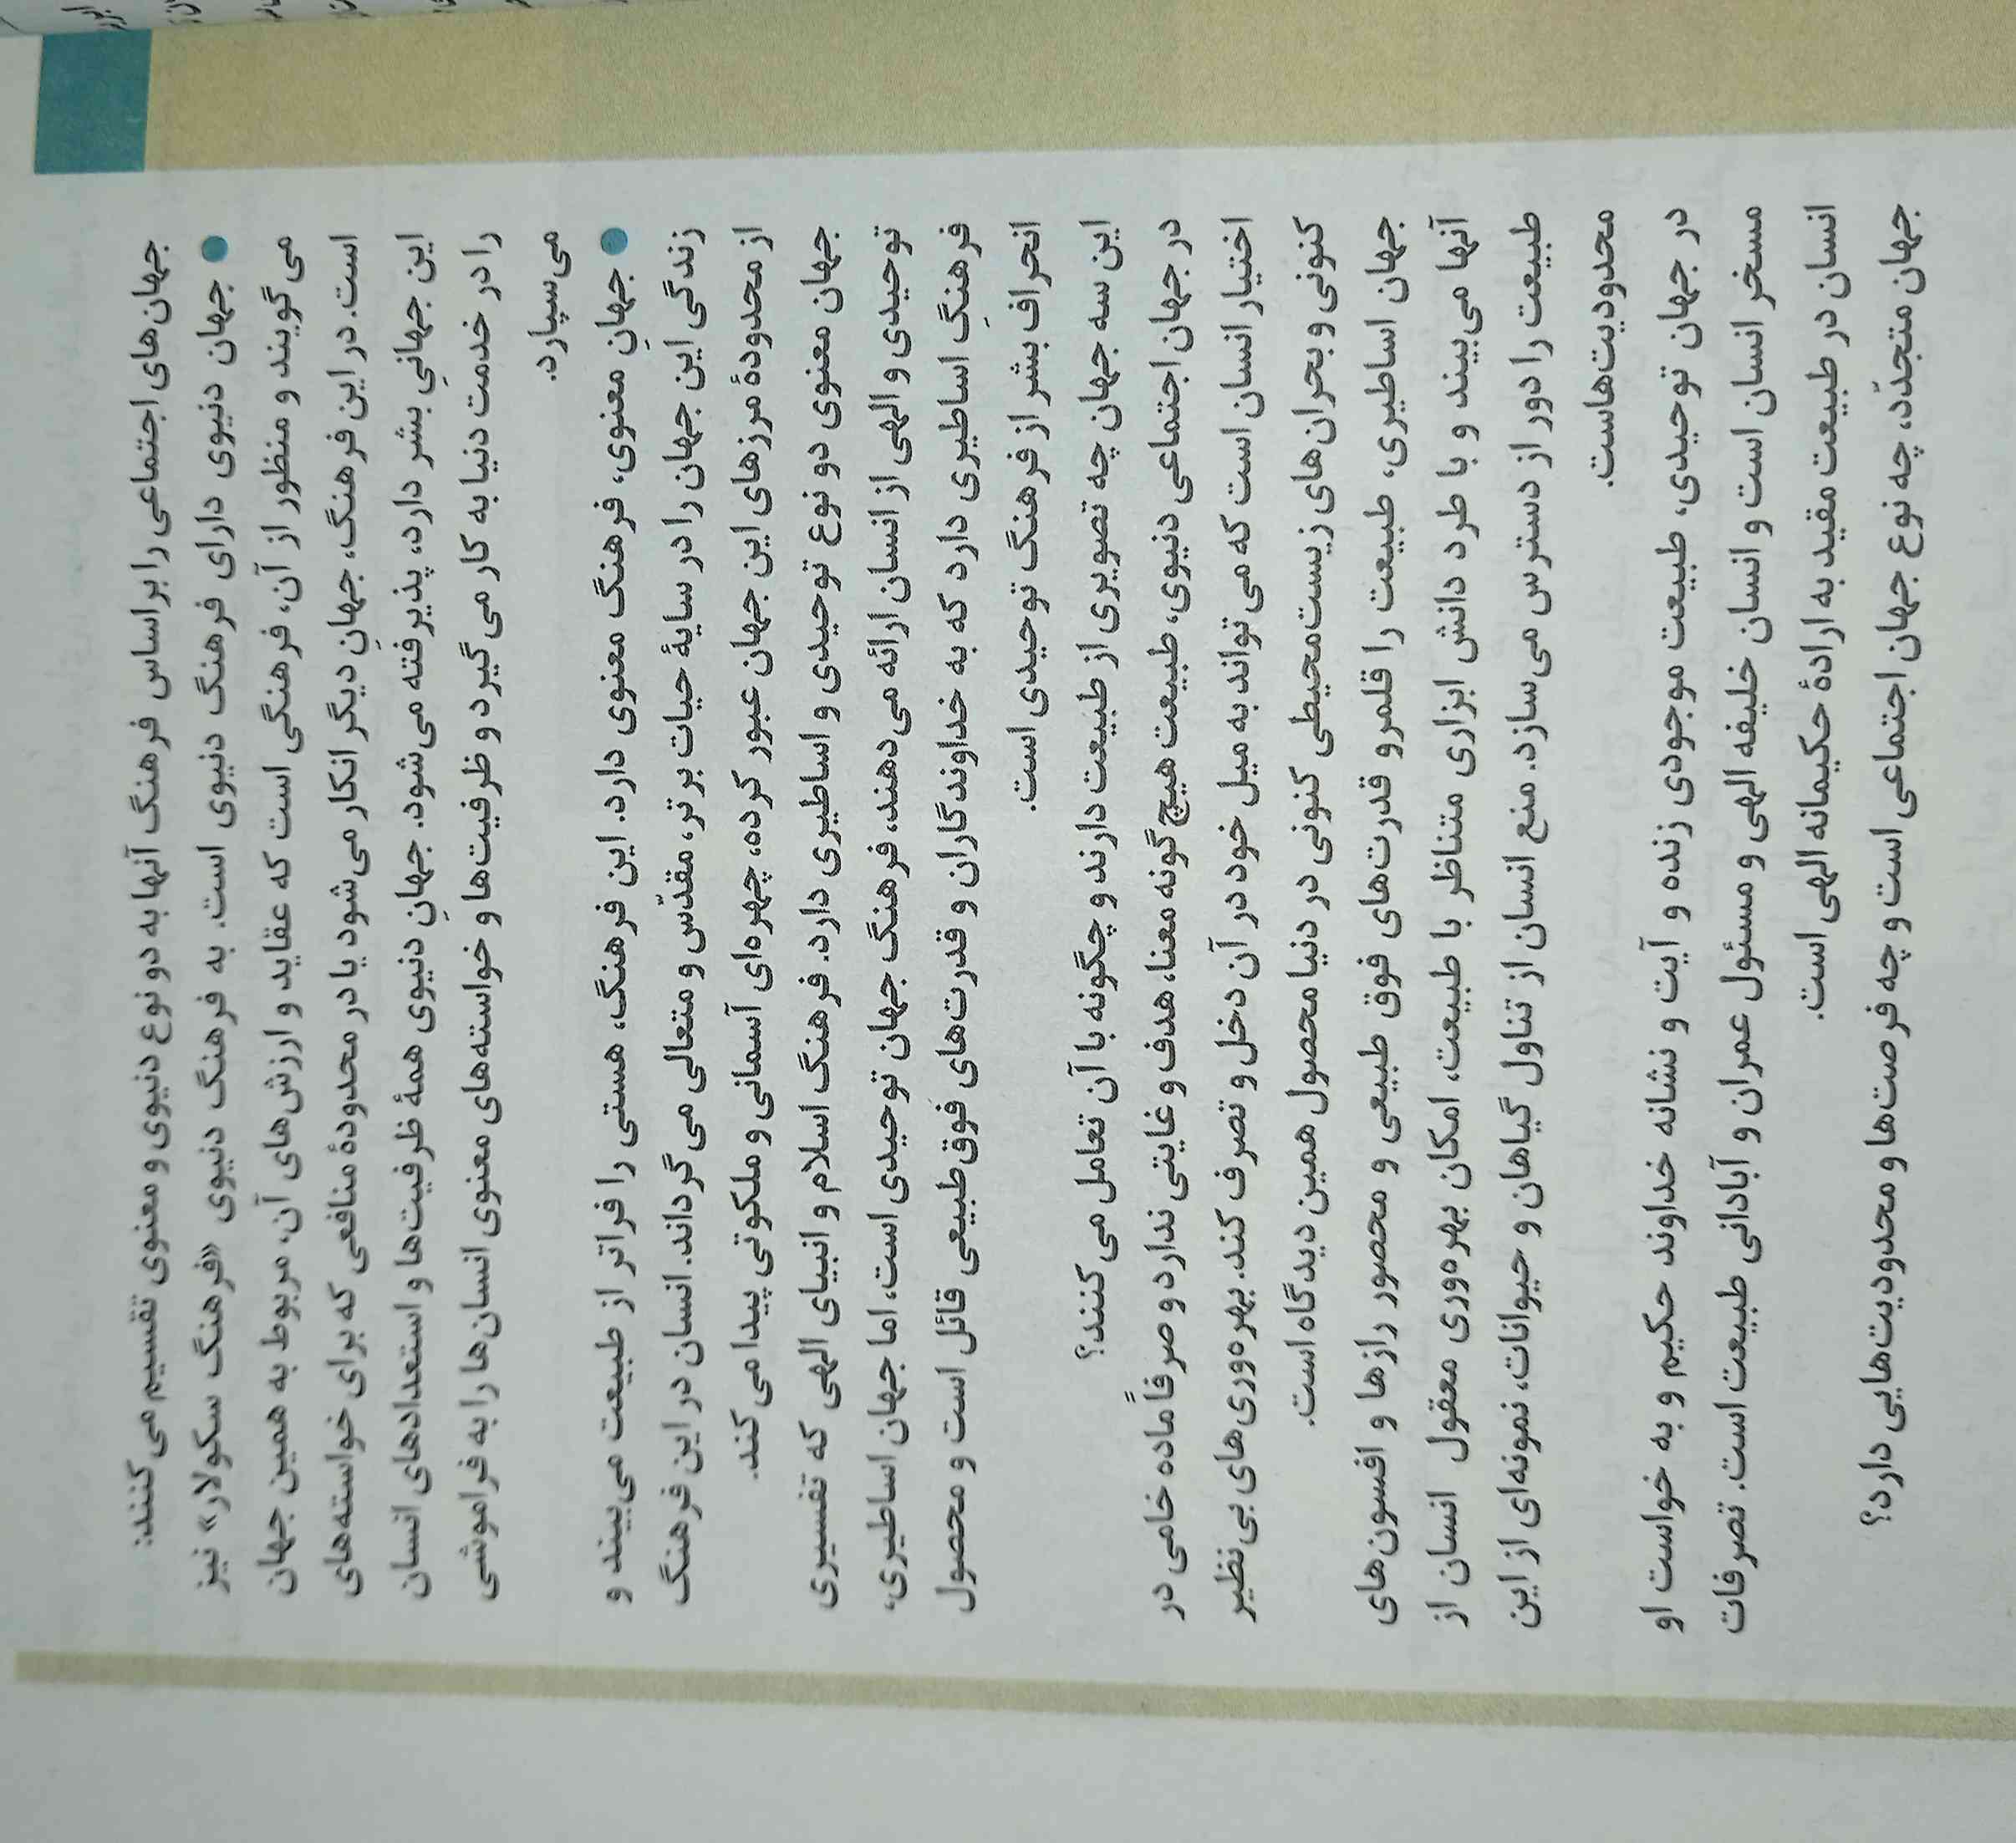 جهان‌های اجتماعی را براساس فرهنگ آنها به دو نوع دنیوی و معنوی تقسیم می‌کنند:
● جهان دنیوی دارای فرهنگ دنیوی است. به فرهنگ دنیوی «فرهنگ سکولار» نیز
می‌گویند و منظور از آن، فرهنگی است که عقاید و ارزش‌های آن، مربوط به همین جهان
است. در این فرهنگ، جهانِ دیگر انکار می‌شود یا در محدودهٔ منافعی که برای خواسته‌های
این جهانیِ بشر دارد، پذیرفته می‌شود. جهانِ دنیوی همهٔ ظرفیت‌ها و استعدادهای انسان
را در خدمت دنیا به کار می‌گیرد و ظرفیت‌ها و خواسته‌های معنوی انسان‌ها را به فراموشی
می‌سپارد.
● جهانِ معنوی، فرهنگ معنوی دارد. این فرهنگ، هستی را فراتر از طبیعت می‌بیند و
زندگی این جهان را در سایهٔ حیات برتر، مقدّس و متعالی می‌گرداند. انسان در این فرهنگ
از محدودهٔ مرزهای این جهان عبور کرده، چهره‌ای آسمانی و ملکوتی پیدا می‌کند.
جهان معنوی دو نوع توحیدی و اساطیری دارد. فرهنگ اسلام و انبیای الهی که تفسیری
توحیدی و الهی از انسان ارائه می‌دهند، فرهنگ جهان توحیدی است، اما جهان اساطیری،
فرهنگِ اساطیری دارد که به خداوندگاران و قدرت‌های فوق‌طبیعی قائل است و محصول
انحراف بشر از فرهنگ توحیدی است.
این سه جهان چه تصویری از طبیعت دارند و چگونه با آن تعامل می‌کنند؟
در جهان اجتماعی دنیوی، طبیعت هیچ‌گونه معنا، هدف و غایتی ندارد و صرفاً ماده خامی در
اختیار انسان است که می‌تواند به میل خود در آن دخل و تصرف کند. بهره‌وری‌های بی‌نظیر
کنونی و بحران‌های زیست‌محیطی کنونی در دنیا محصول همین دیدگاه است.
جهان اساطیری، طبیعت را قلمرو قدرت‌های فوق طبیعی و محصور رازها و افسون‌های
آنها می‌بیند و با طرد دانش ابزاری متناظر با طبیعت، امکان بهره‌وری معقول انسان از
طبیعت را دور از دسترس می‌سازد. منع انسان از تناول گیاهان و حیوانات، نمونه‌ای از این
محدودیت‌هاست.
در جهان توحیدی، طبیعت موجودی زنده و آیت و نشانه خداوند حکیم و به خواست او
مسخر انسان است و انسان خلیفه الهی و مسئول عمران و آبادانی طبیعت است. تصرفات
انسان در طبیعت مقید به ارادهٔ حکیمانه الهی است.
جهان متجدّد، چه نوع جهان اجتماعی است و چه فرصت‌ها و محدودیت‌هایی دارد؟